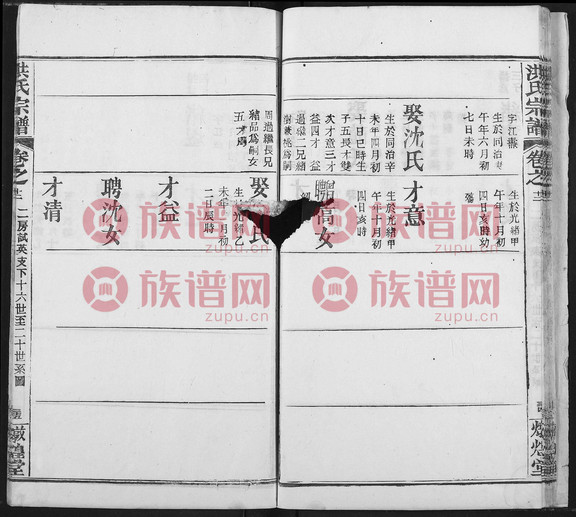 洪氏宗譜
卷之
字江㵾
生於同治癸
午年六月初
七日未時
娶沈氏
生於同治辛
未年四月初
十日巳時生
子五長才雙
次才意三才
益四才 益
過繼二兄緒
周過繼長兄
緒品為嗣女
五才
生於光緒甲
午年十月初
四日亥時幼
殤
才意
生於光緒甲
午年十月初
四日亥時
聘高女
娶 氏
生 光緒乙
未年 月初
二日辰時
才益
聘沈女
才清
洪氏宗譜
卷之
二房試英支下十六世至二十世系圖
敦煌堂
燉煌堂
族谱网
zupu.cn
族谱网
zupu.cn
族谱网
zupu.cn
族谱网
zupu.cn